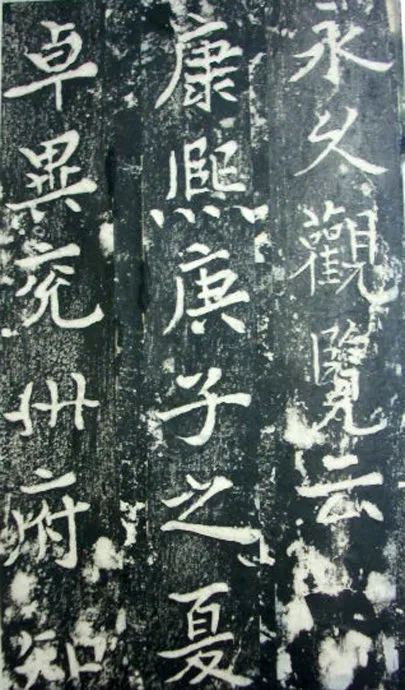 永久觀覽云
康熙庚子之夏
卓異兖州府知